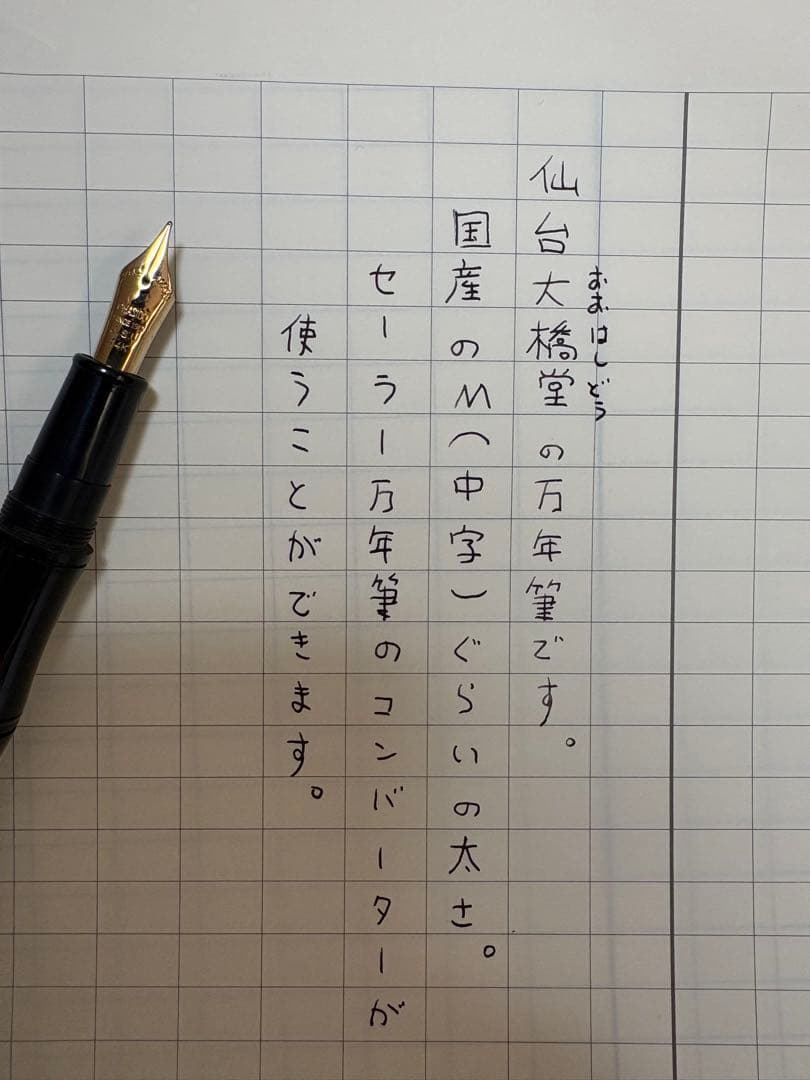 仙台大橋堂の万年筆です。
おおはしどう
国産のM(中字)ぐらいの太さ。
セーラー万年筆のコンバーターが
使うことができます。